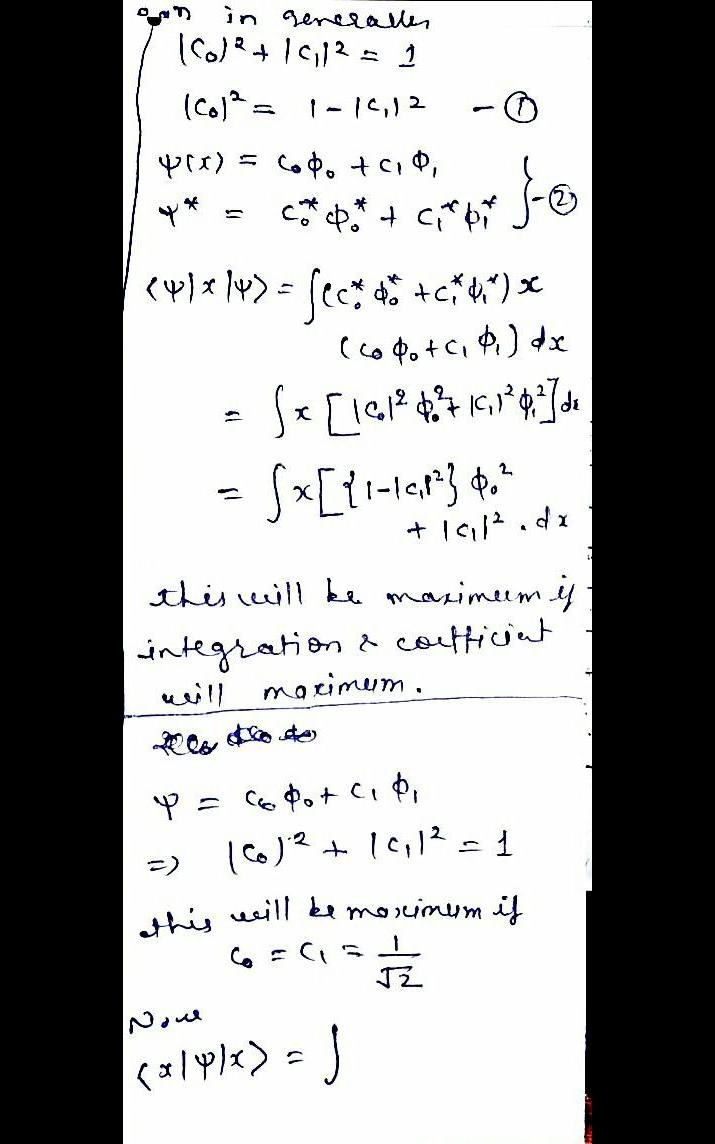 in generaller
|C₀|² + |C₁|² = 1
|C₀|² = 1 - |C₁|² - ①
ψ(x) = C₀ϕ₀ + C₁ϕ₁
ψ* = C₀*ϕ₀* + C₁*ϕ₁* } - ②
⟨ψ|x|ψ⟩ = ∫(C₀*ϕ₀* + C₁*ϕ₁*) x
(C₀ϕ₀ + C₁ϕ₁) dx
= ∫x [|C₀|² ϕ₀² + |C₁|² ϕ₁²] dx
= ∫x[{1-|C₁|²} ϕ₀²
+ |C₁|² . dx
this will be maximum if
integration & coefficient
will maximum.
ψ = C₀ϕ₀ + C₁ϕ₁
=> |C₀|² + |C₁|² = 1
this will be maximum if
C₀ = C₁ = 1/√2
Now
⟨x|ψ|x⟩ = ∫